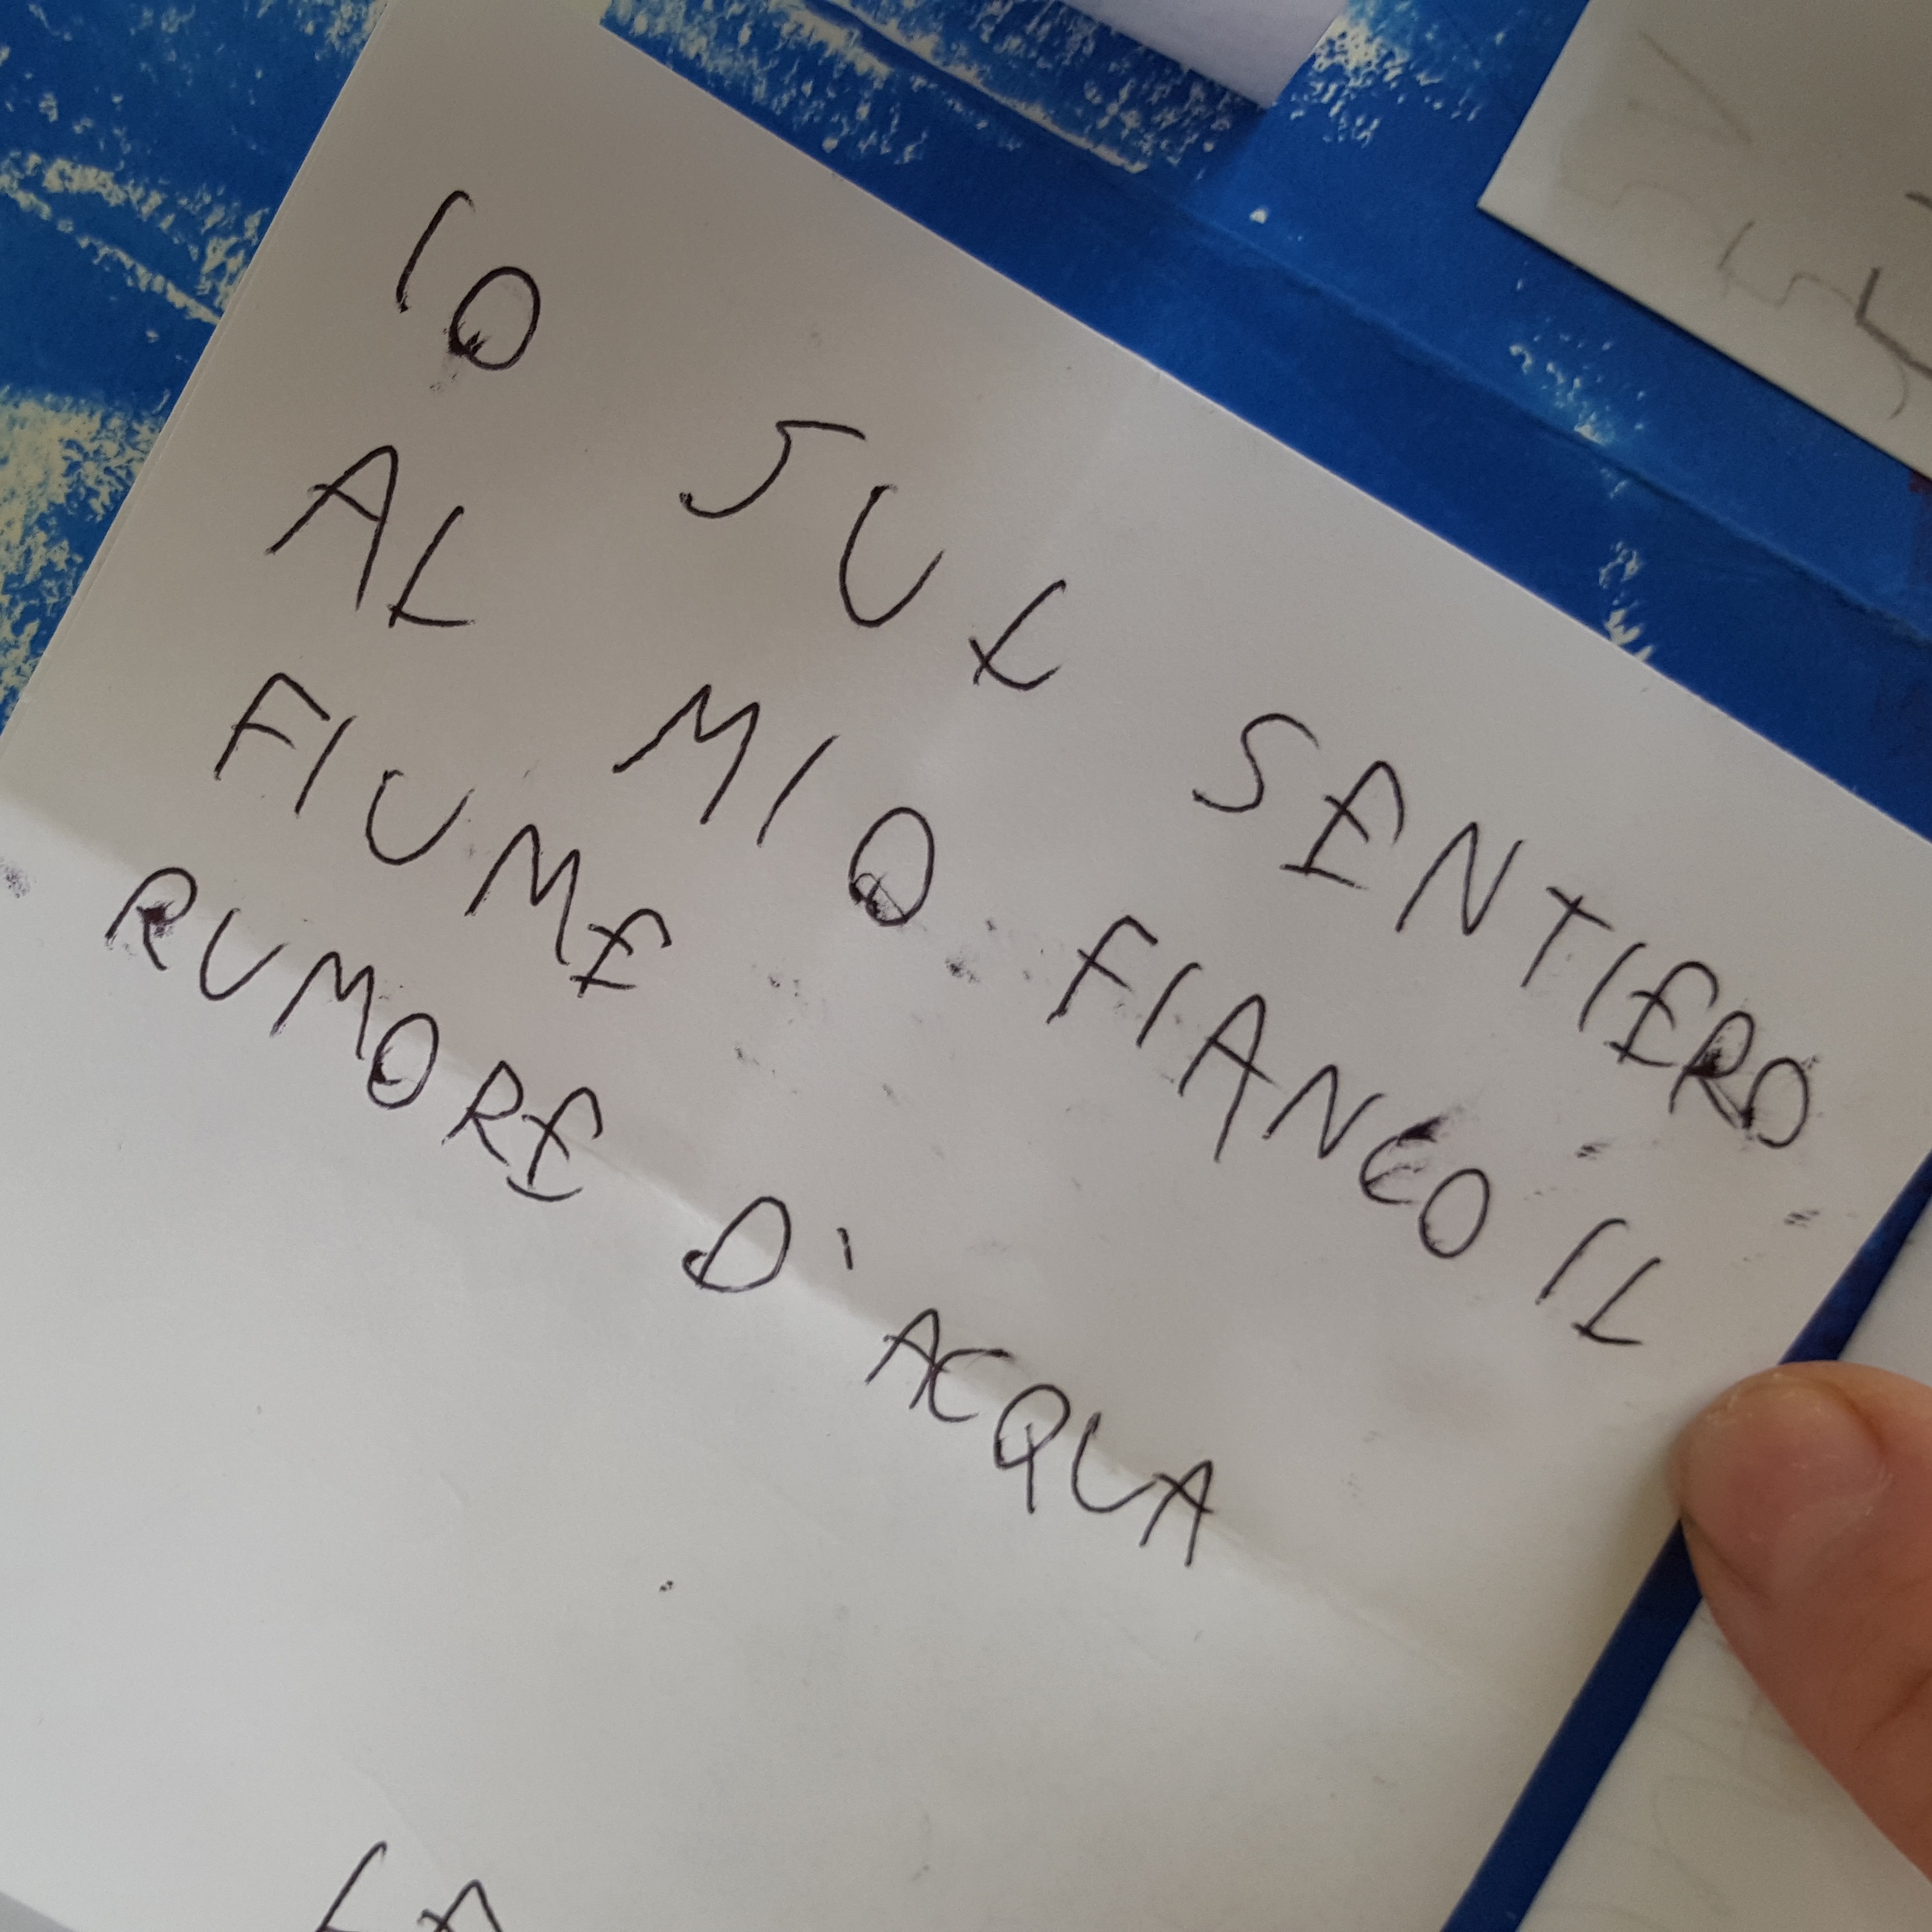 IO SUL SENTIERO
AL MIO FIANCO IL
FIUME
RUMORE D'ACQUA